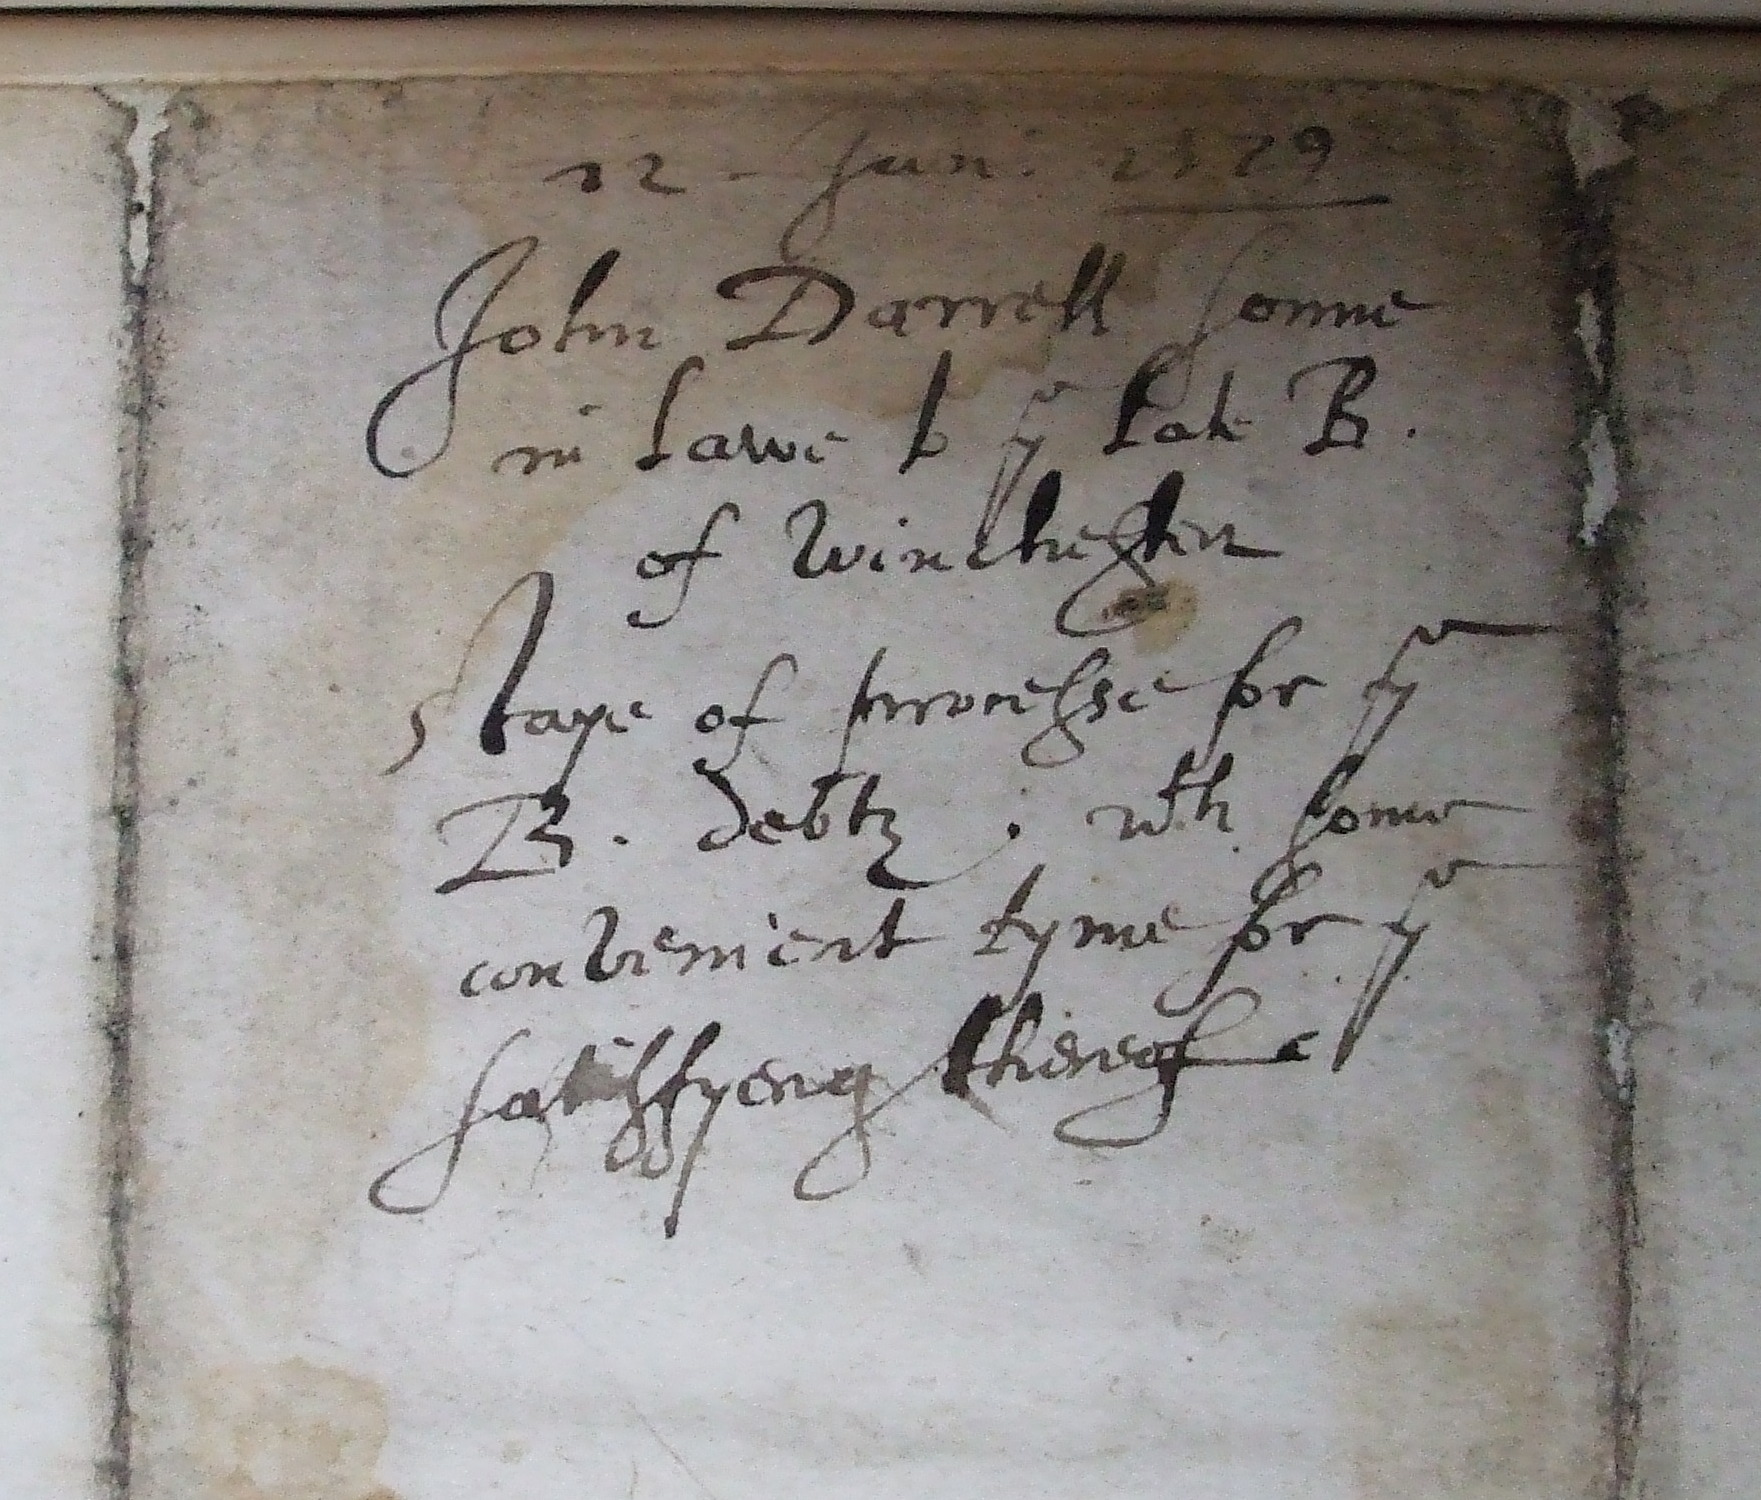 12 - Juni. 1579
John Darrell sonne
in Lawe to yͤ Late B.
of Winchester
Staye of processe for yͤ
B. debtꝭ. wth some
convenient tyme for yͤ
satisfyeng thereof